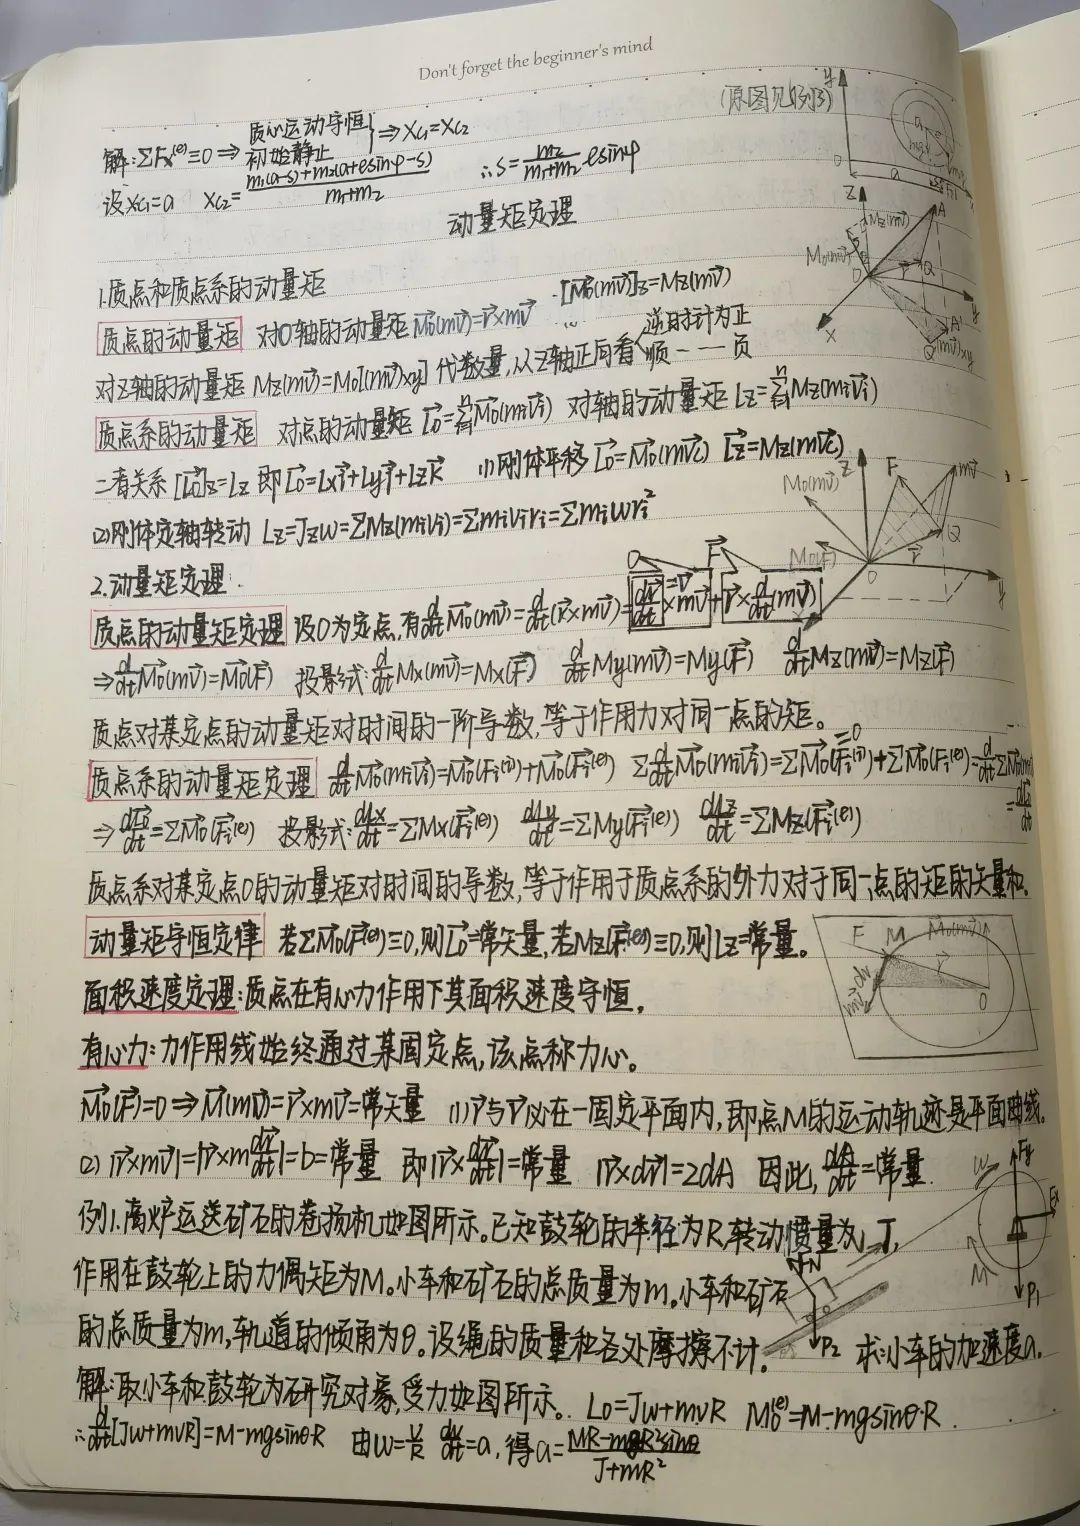 Don't forget the beginner's mind
(原图见例3)
解:ΣFx⁽ᵉ⁾≡0⇒ 质心运动守恒 初始静止 }⇒Xc₁=Xc₂
设Xc₁=a Xc₂=m₁(a-s)+m₂(a+esinφ-s)/m₁+m₂ ∴s=m₂/m₁+m₂ esinφ
动量矩定理
1.质点和质点系的动量矩
质点的动量矩 对O轴的动量矩M⃗o(mv⃗)=r⃗×mv⃗ [M⃗o(mv⃗)]z=Mz(mv⃗)
对Z轴的动量矩 Mz(mv⃗)=Mo[(mv⃗)xy] 代数量,从Z轴正向看 逆时针为正 顺一一一负
质点系的动量矩 对点的动量矩 L⃗o=Σⁿᵢ₌₁M⃗o(mᵢv⃗ᵢ) 对轴的动量矩 Lz=Σⁿᵢ₌₁Mz(mᵢv⃗ᵢ)
二者关系 [L⃗o]z=Lz 即L⃗o=Lxi⃗+Lyj⃗+Lzk⃗ (1)刚体平移 L⃗o=M⃗o(mv⃗c) L⃗z=Mz(mv⃗c)
(2)刚体定轴转动 Lz=Jzω=ΣMz(mᵢvᵢ)=Σmᵢvᵢrᵢ=Σmᵢωrᵢ²
2.动量矩定理
质点的动量矩定理 设O为定点,有d/dt M⃗o(mv⃗)=d/dt(r⃗×mv⃗)=dr⃗/dt×mv⃗+r⃗×d/dt(mv⃗)
O =v⃗ F⃗
⇒d/dt M⃗o(mv⃗)=M⃗o(F⃗) 投影式:d/dt Mx(mv⃗)=Mx(F⃗) d/dt My(mv⃗)=My(F⃗) d/dt Mz(mv⃗)=Mz(F⃗)
质点对某定点的动量矩对时间的一阶导数,等于作用力对同一点的矩。
质点系的动量矩定理 d/dt M⃗o(mᵢv⃗ᵢ)=M⃗o(F⃗ᵢ⁽ⁱ⁾)+M⃗o(F⃗ᵢ⁽ᵉ⁾) Σd/dt M⃗o(mᵢv⃗ᵢ)=ΣM⃗o(F⃗ᵢ⁽ⁱ⁾)+ΣM⃗o(F⃗ᵢ⁽ᵉ⁾)=d/dt ΣM⃗o(m
=0
=dL⃗o/dt
⇒dL⃗o/dt=ΣM⃗o(F⃗ᵢ⁽ᵉ⁾) 投影式:dLx/dt=ΣMx(F⃗ᵢ⁽ᵉ⁾) dLy/dt=ΣMy(F⃗ᵢ⁽ᵉ⁾) dLz/dt=ΣMz(F⃗ᵢ⁽ᵉ⁾)
质点系对某定点O的动量矩对时间的导数,等于作用于质点系的外力对于同一点的矩的矢量和.
动量矩守恒定律 若ΣM⃗o(F⃗⁽ᵉ⁾)≡0,则L⃗o=常矢量,若Mz(F⃗⁽ᵉ⁾)≡0,则Lz=常量。
面积速度定理:质点在有心力作用下其面积速度守恒。
有心力:力作用线始终通过某固定点,该点称力心。
M⃗o(F⃗)=0⇒M⃗(mv⃗)=r⃗×mv⃗=常矢量 (1)r⃗与v⃗必在一固定平面内,即点M的运动轨迹是平面曲线。
(2) |r⃗×mv⃗|=|r⃗×m dr⃗/dt|=b=常量 即|r⃗×dr⃗/dt|=常量 |r⃗×dr⃗|=2dA 因此,dA/dt=常量
例1.高炉运送矿石的卷扬机如图所示。已知鼓轮的半径为R,转动惯量为J,
作用在鼓轮上的力偶矩为M。小车和矿石的总质量为m。小车和矿石
的总质量为m,轨道的倾角为θ。设绳的质量和各处摩擦不计. 求:小车的加速度a.
解:取小车和鼓轮为研究对象,受力如图所示。 Lo=Jω+mvR Mo⁽ᵉ⁾=M-mgsinθ·R.
∴d/dt[Jω+mvR]=M-mgsinθ·R 由ω=v/R dv/dt=a,得a=MR-mgR²sinθ/J+mR²